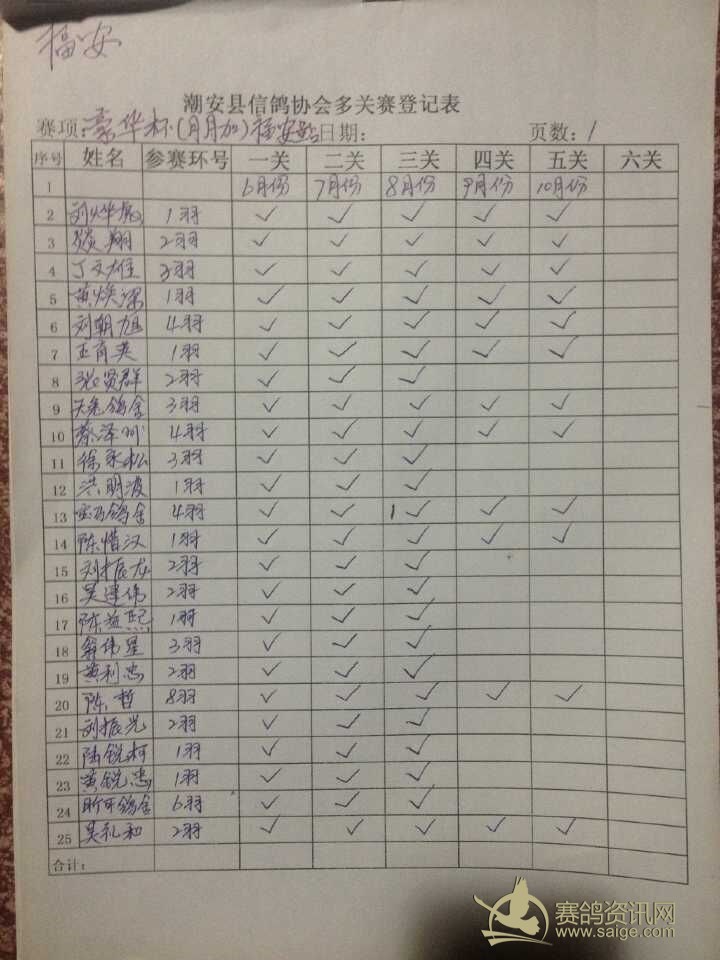 福安
潮安县信鸽协会多关赛登记表
赛项:豪华杯(月月加)福安站日期: 页数:1
序号 姓名 参赛环号 一关 二关 三关 四关 五关 六关
1 6月份 7月份 8月份 9月份 10月份
2 刘烨 1羽 ✓ ✓ ✓ ✓ ✓
3 翔 2羽 ✓ ✓ ✓ ✓ ✓
4 丁文雄 3羽 ✓ ✓ ✓ ✓ ✓
5 黄焕 1羽 ✓ ✓ ✓ ✓ ✓
6 刘朝旭 4羽 ✓ ✓ ✓ ✓ ✓
7 王育英 1羽 ✓ ✓ ✓ ✓ ✓
8 张贤群 2羽 ✓ ✓ ✓
9 鸽舍 3羽 ✓ ✓ ✓ ✓ ✓
10 蔡泽 4羽 ✓ ✓ ✓ ✓ ✓
11 徐永松 3羽 ✓ ✓ ✓
12 洪明波 1羽 ✓ ✓ ✓
13 鸽舍 4羽 ✓ ✓ 1 ✓ ✓ ✓
14 陈惜汉 1羽 ✓ ✓ ✓ ✓ ✓
15 刘振龙 2羽 ✓ ✓ ✓
16 吴伟 2羽 ✓ ✓ ✓
17 陈益熙 1羽 ✓ ✓ ✓
18 翁伟星 3羽 ✓ ✓ ✓
19 黄利忠 2羽 ✓ ✓ ✓
20 陈哲 8羽 ✓ ✓ ✓ ✓ ✓
21 刘振光 2羽 ✓ ✓ ✓
22 陆锐柯 1羽 ✓ ✓ ✓
23 黄锐忠 1羽 ✓ ✓ ✓
24 鸽舍 6羽 ✓ ✓ ✓
25 吴礼和 2羽 ✓ ✓ ✓ ✓ ✓
合计:
赛鸽资讯网
www.saige.com